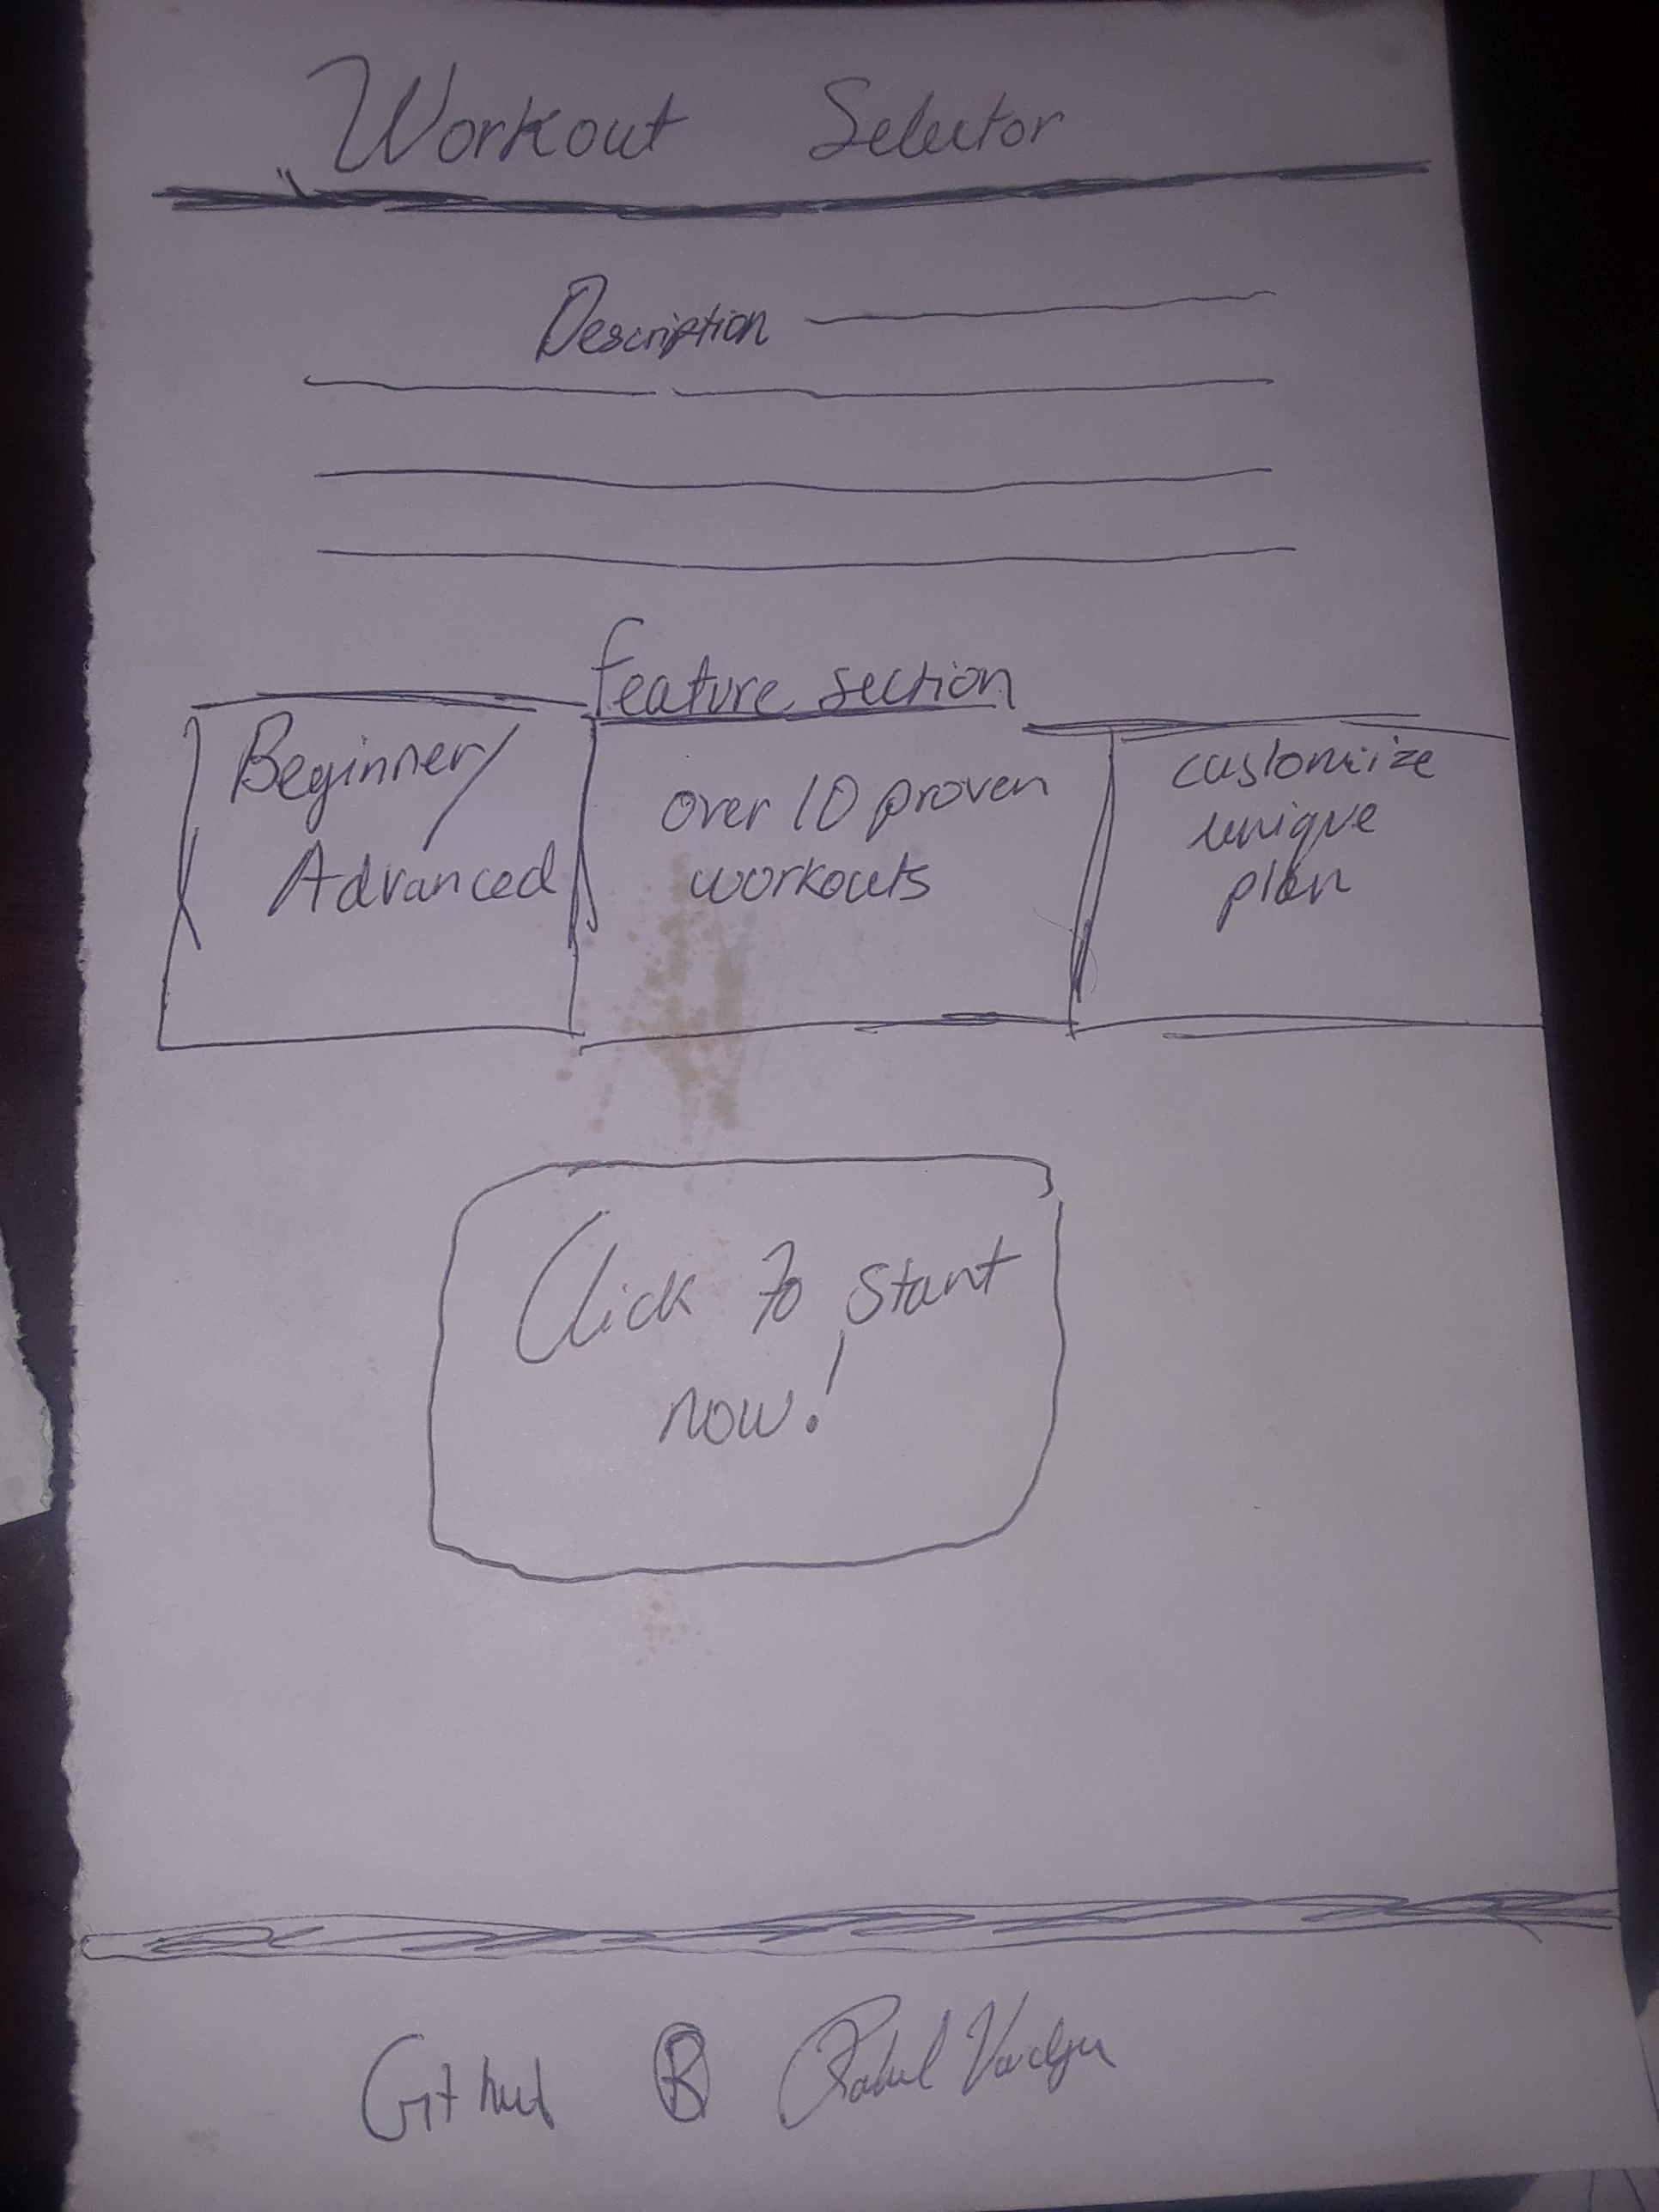 Workout Selector
Description
feature section
Beginner/
Advanced
over 10 proven
workouts
customize
unique
plan
Click to start
now!
GitHub ®